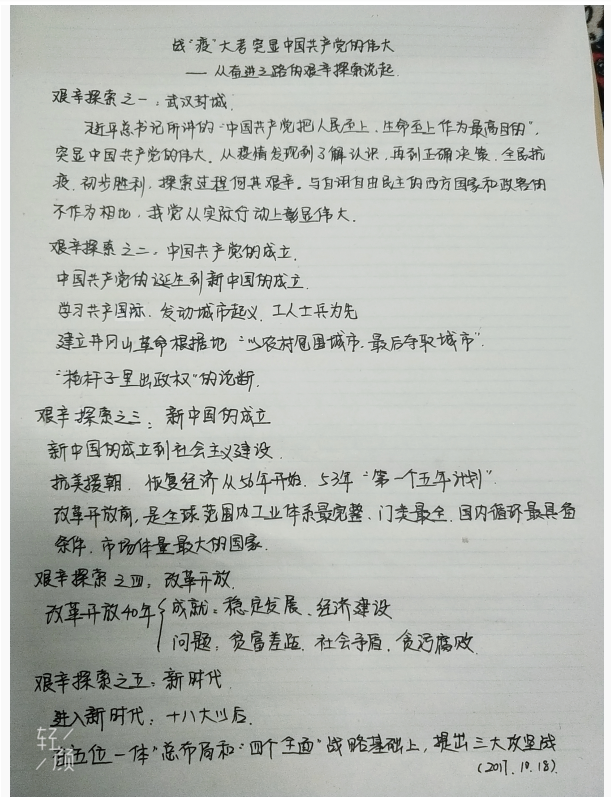 战"疫"大考突显中国共产党的伟大
—— 从奋进之路的艰辛探索说起.
艰辛探索之一：武汉封城.
习近平总书记所讲的"中国共产党把人民至上、生命至上作为最高目的",
突显中国共产党的伟大. 从疫情发现到了解认识, 再到正确决策、全民抗
疫、初步胜利, 探索过程何其艰辛. 与自诩自由民主的西方国家和政客的
不作为相比, 我党从实际行动上彰显伟大.
艰辛探索之二, 中国共产党的成立.
中国共产党的诞生到新中国的成立.
学习共产国际、发动城市起义、工人士兵为先
建立井冈山革命根据地 "以农村包围城市、最后夺取城市".
"枪杆子里出政权"的论断.
艰辛探索之三：新中国的成立
新中国的成立到社会主义建设.
抗美援朝、恢复经济从50年开始. 53年"第一个五年计划".
改革开放前, 是全球范围内工业体系最完整、门类最全、国内循环最具备
条件、市场体量最大的国家.
艰辛探索之四：改革开放.
改革开放40年{成就：稳定发展、经济建设
问题：贫富差距、社会矛盾、贪污腐败.
艰辛探索之五：新时代
进入新时代：十八大以后.
在五位一体"总布局和"四个全面"战略基础上, 提出三大攻坚战
(2017.10.18).
轻颜